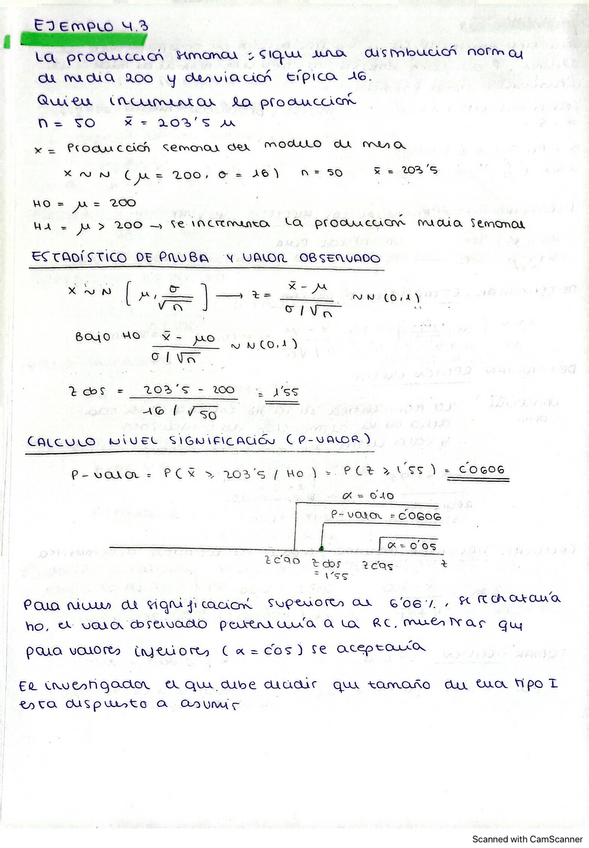 EJEMPLO 4.3
La producción semanal = sigue una distribución normal
de media 200 y desviación típica 16.
Quieu incrementar la producción
n = 50 x̄ = 203'5 u
x = Producción semanal del modulo de mesa
x ~ N (μ = 200, σ = 16) n = 50 x̄ = 203'5
H0 = μ = 200
H1 = μ > 200 → se incrementa la producción media semanal
ESTADÍSTICO DE PRUEBA Y VALOR OBSERVADO
x ~ N [μ, σ/√n] → z = x̄ - μ / σ/√n ~ N(0,1)
BAJO H0 x̄ - μ0 / σ/√n ~ N(0,1)
z obs = 203'5 - 200 / 16/√50 = 1'55
CALCULO NIVEL SIGNIFICACIÓN (P-VALOR)
P-valor = P(x̄ ≥ 203'5 / H0) = P(z ≥ 1'55) = 0'0606
α = 0'10
P-valor = 0'0606
α = 0'05
z0'90 z obs z0'95 z
= 1'55
Para niveles de significación superiores al 6'06%, se rechazaría
h0, el valor observado pertenecería a la RC, mientras que
para valores inferiores (α = 0'05) se aceptaría
El investigador el que debe decidir que tamaño del error tipo I
esta dispuesto a asumir
Scanned with CamScanner